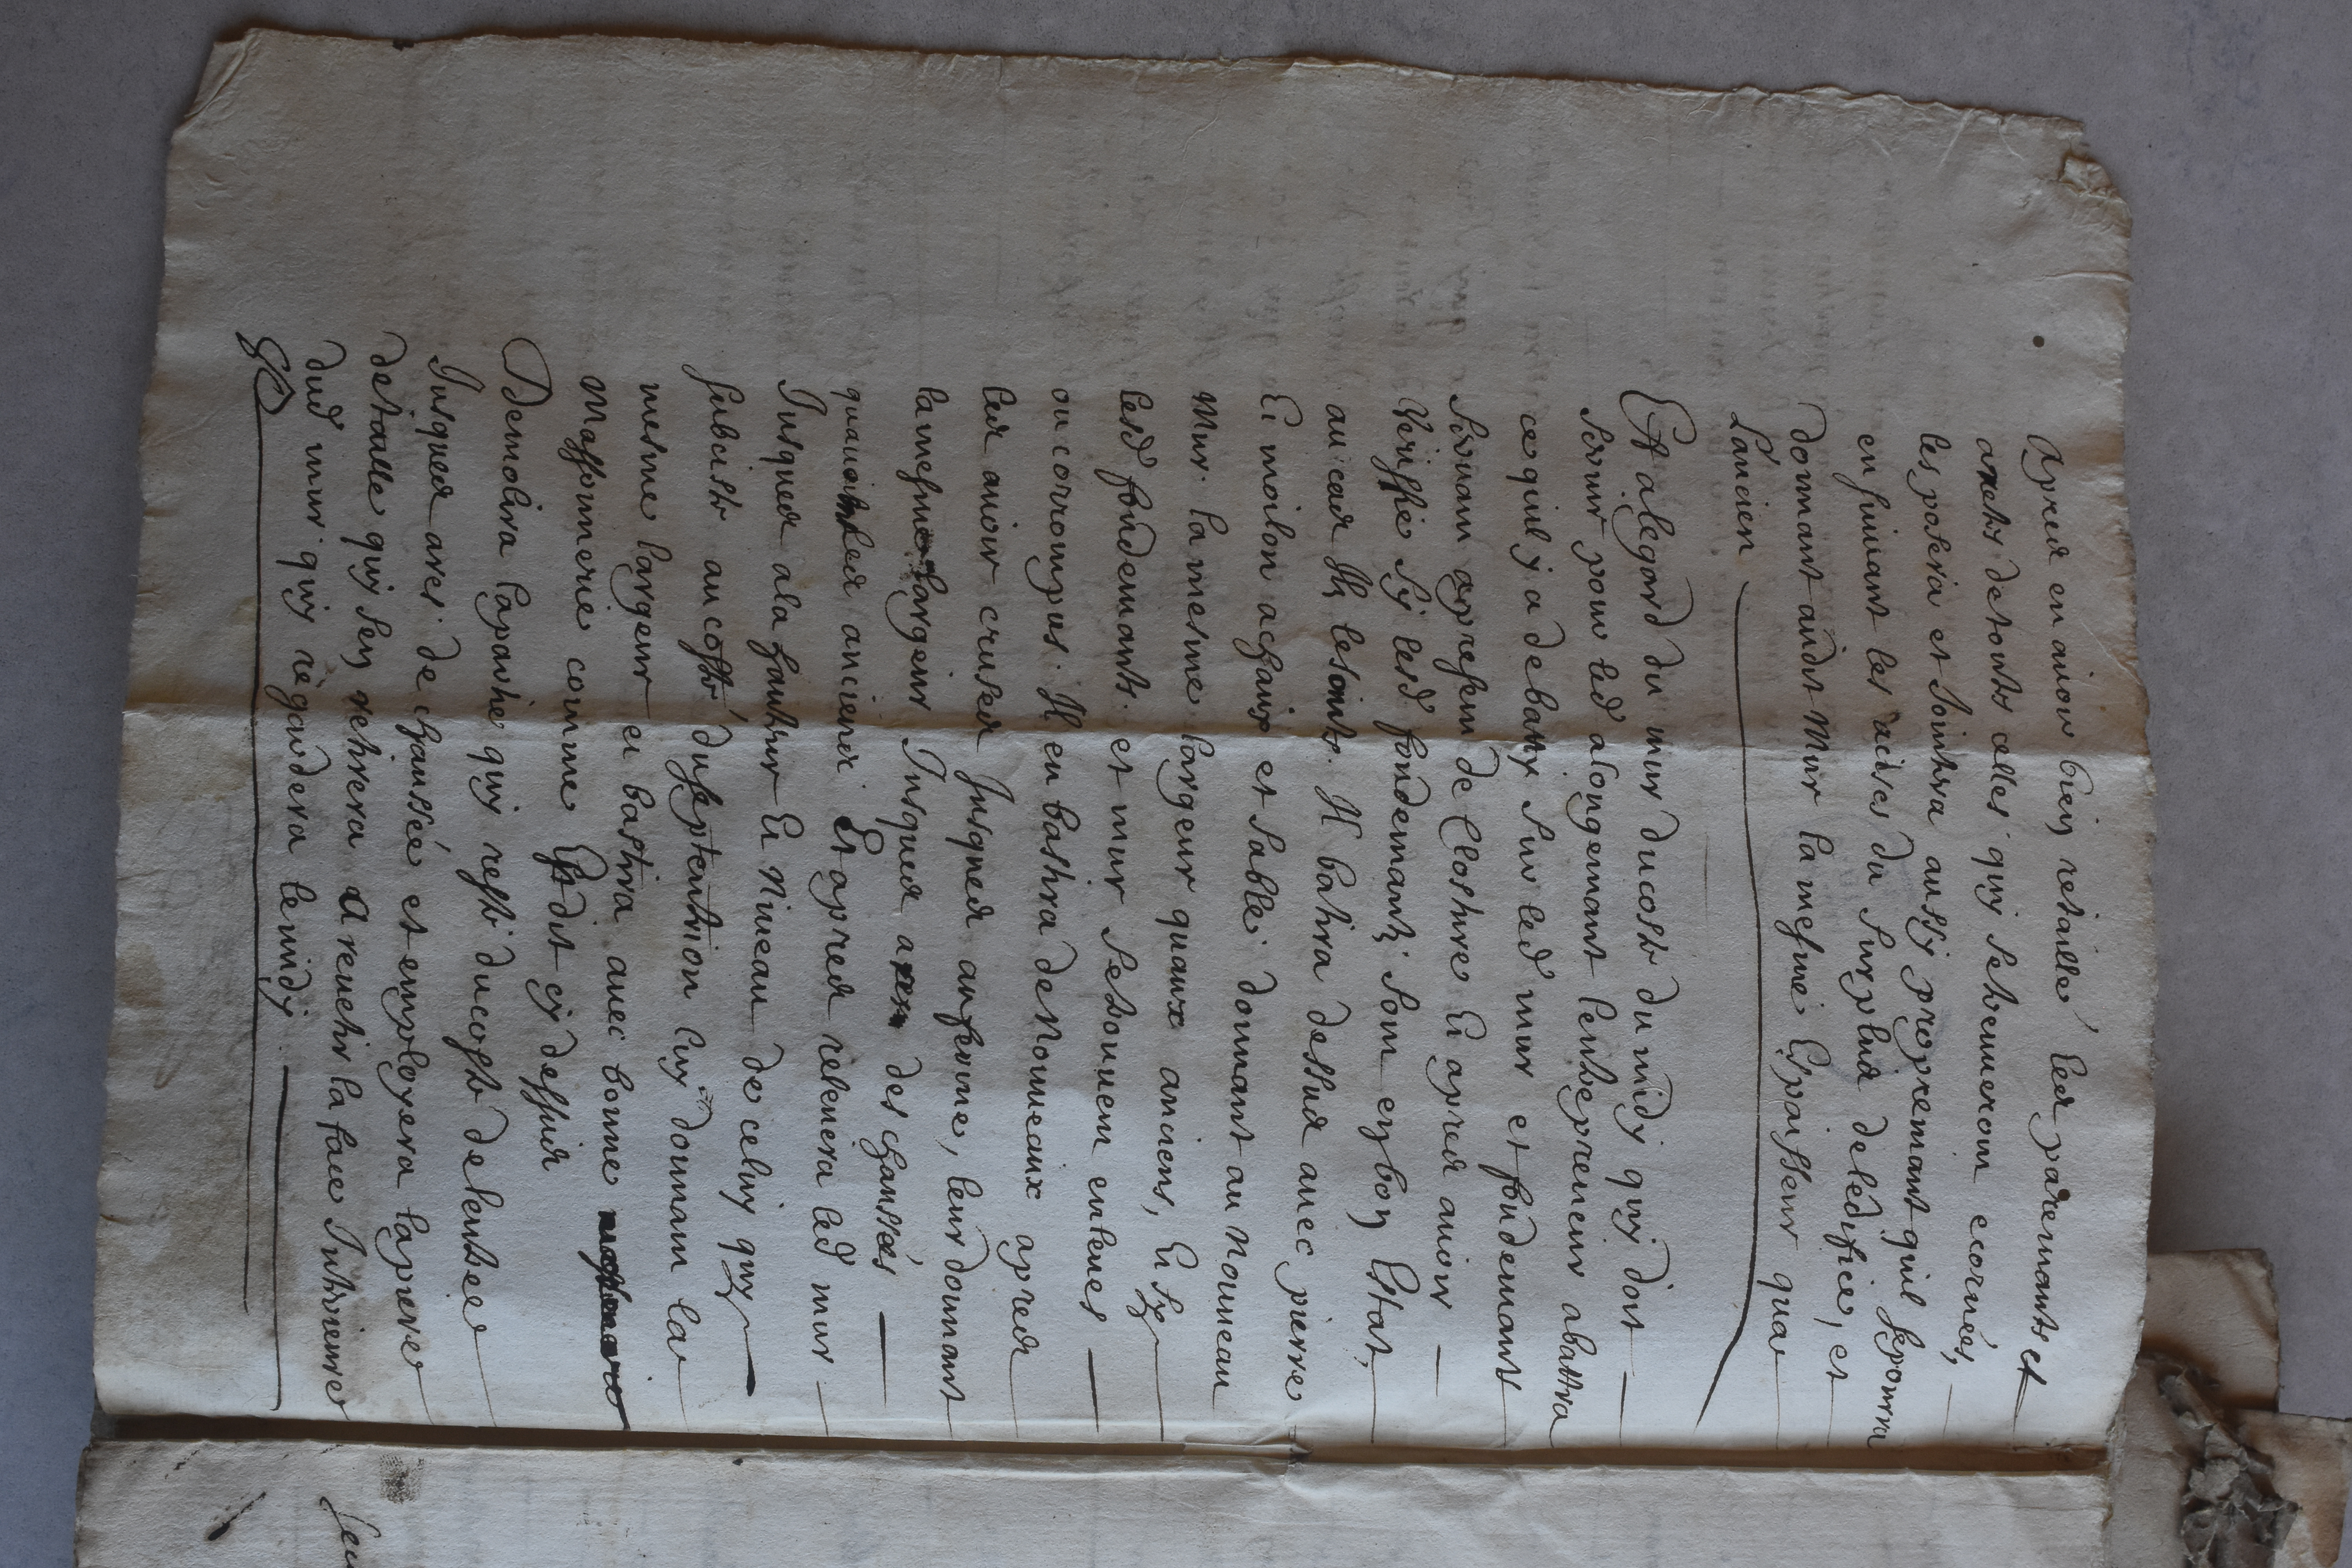 Apres en avoir bien retaillé les paremants et
aretes de touts celles quy se treuveront ecornées,
les posera et Jointra aussy propremant quil se pourra
en suivant les acises du surplus de ledifice, et
donnant audit Mur la mesme Epaisseur qua
L'ancien
Et a legard du mur du costé du midy quy doit
servir pour led alongemant lentrepreneur abattra
ce quil y a de baty sur led mur et fondemant
servant apresent de Closture Et apres avoir
Veriffié sy lesd fondemants sont en bon Estat,
au cas Ilz lesoint. Il batira dessus avec pierre
Et moilon achaux et sable: donnant au nouveau
Mur. la mesme largeur quaux anciens, Et sy
lesd fondemants. et mur setrouvent entines
ou corrompus. Il en bastira de Nouveaux apres
les avoir cruses Jusques au ferme, leur donnant
la mesme largeur Jusques a des chaussés
quau les anciens Et apres relevera led mur
Jusques a la hauteur Et Niveau de celuy quy
subciste au costé du septentrion luy donnant la
mesme largeur et bastira avec bonne
Massonnerie comme Est dit cy dessus
Demolira la partie quy reste du costé de lentrée
Jusques ares de chaussée et employera la pierre
de taille quy sen retirera A revetir la face Interieure
dud mur quy regardera le midy.